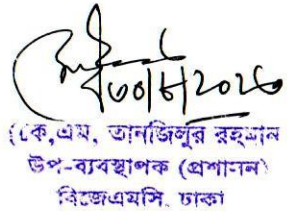 ৩০|৮|২০২৩
(কে,এম, তানজিলুর রহমান
উপ-ব্যবস্থাপক (প্রশাসন)
বিজেএমসি, ঢাকা